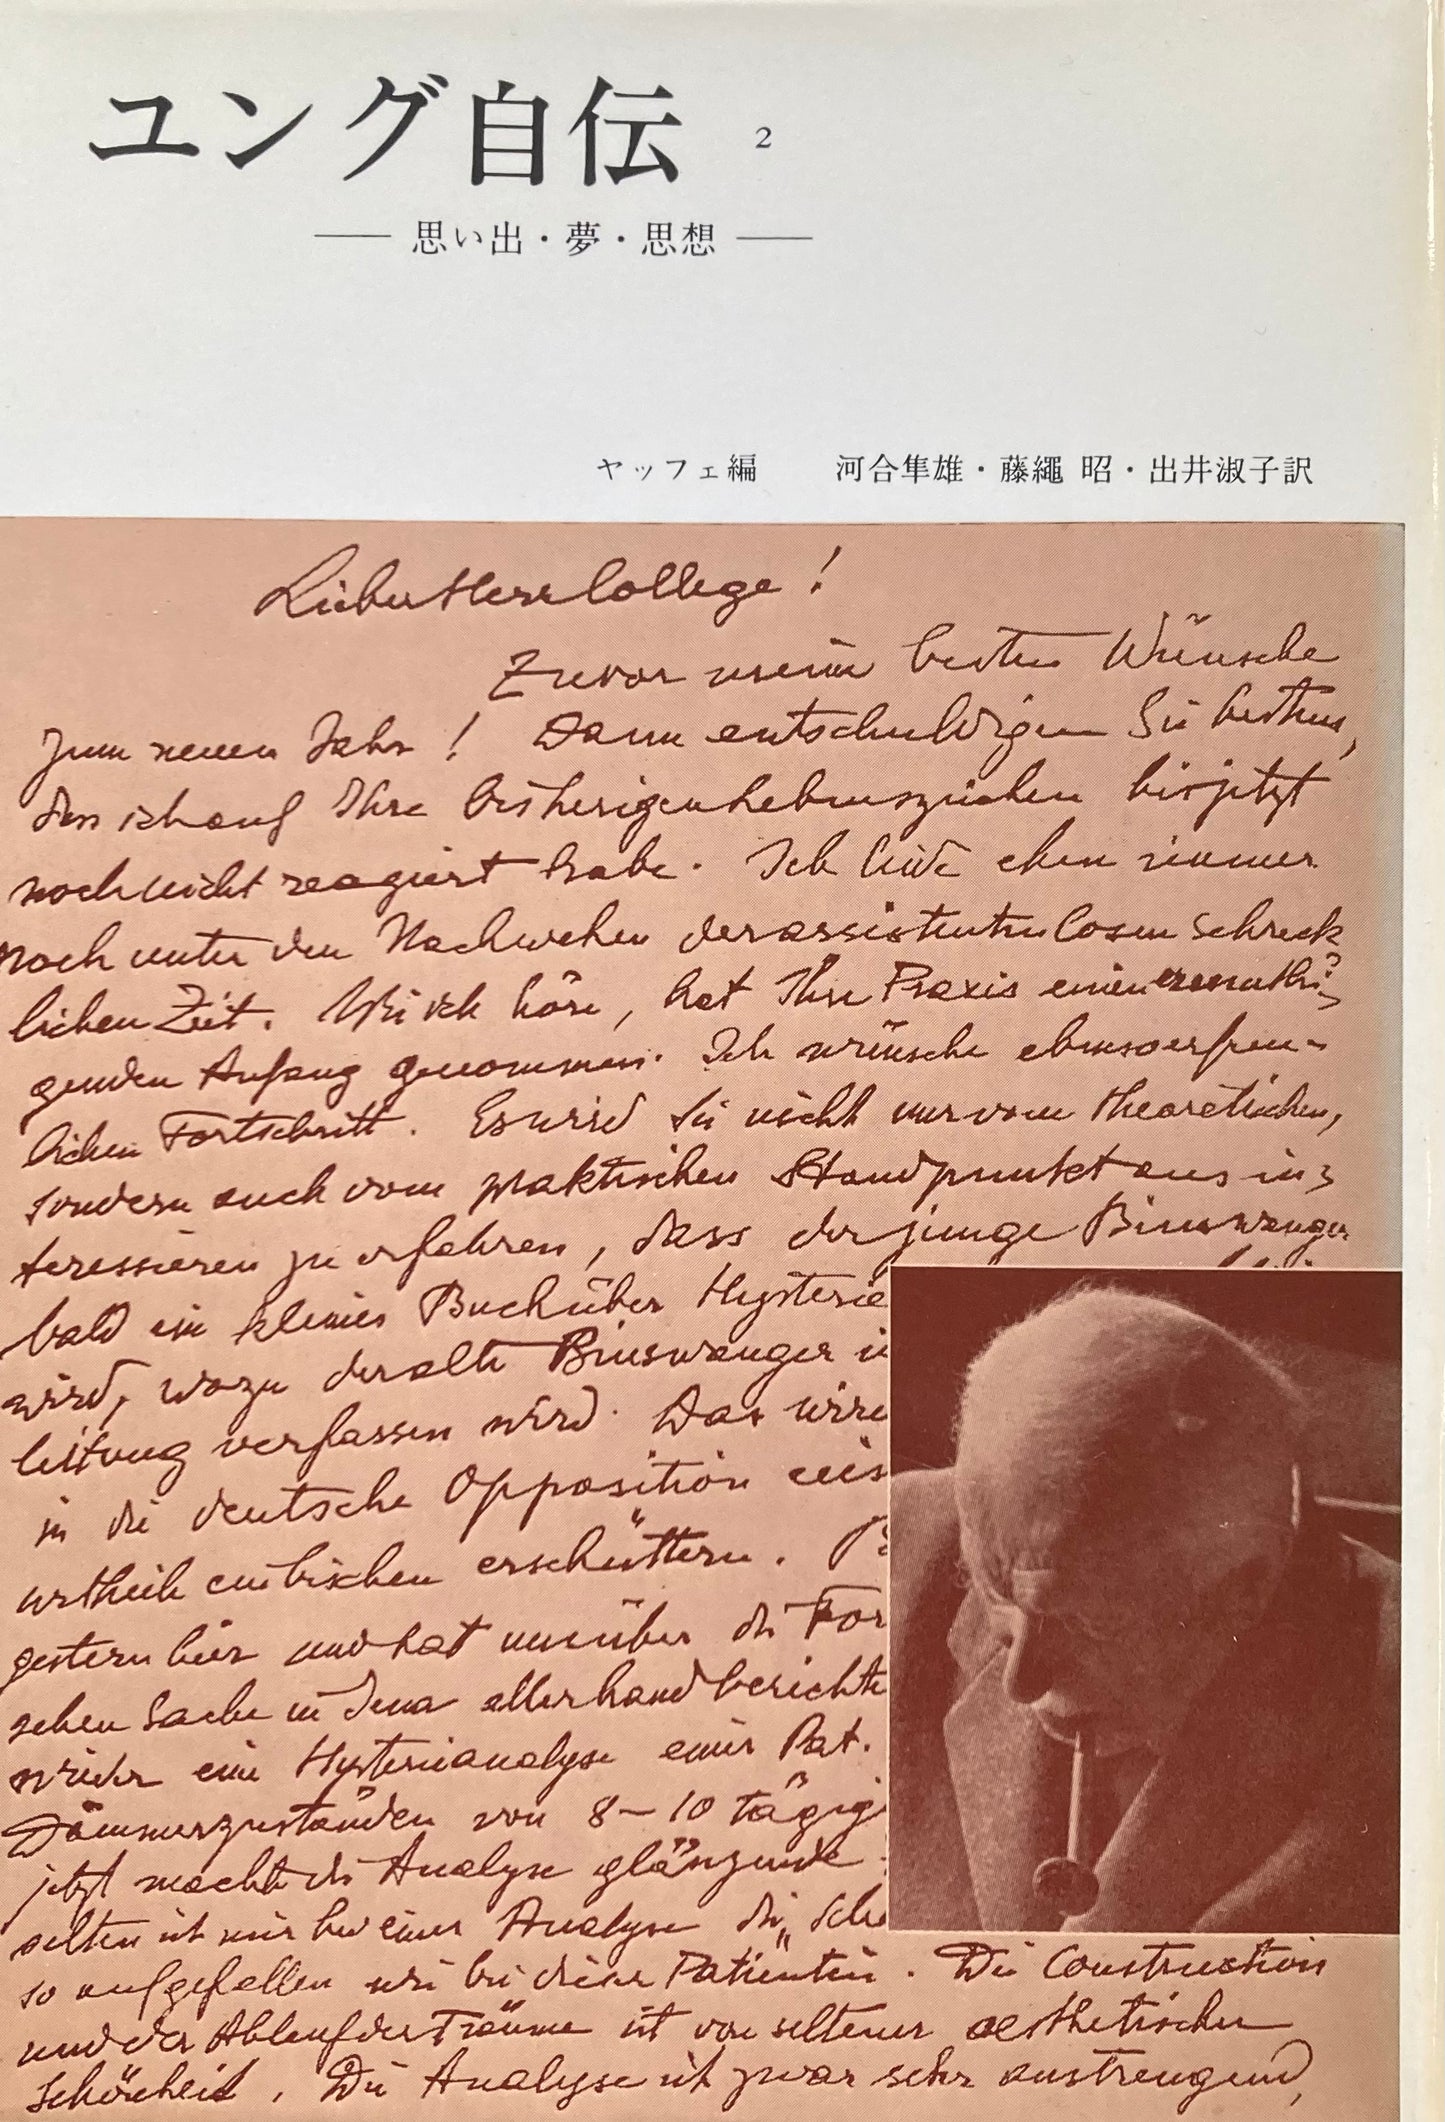 ユング自伝 2
思い出・夢・思想
ヤッフェ編 河合隼雄・藤繩 昭・出井淑子訳
Lieber Herr College!
Zuvor meine besten Wünsche
zum neuen Jahr! Dann entschuldigen Sie bestens,
dass ich auf Ihre bisherigen Lebenszeichen bis jetzt
noch nicht reagiert habe. Ich leide eben immer
noch unter den Nachwehen der assistentenlosen schreck
lichen Zeit. Wie ich höre, hat Ihre Praxis einen ermuthi-
genden Anfang genommen. Ich wünsche ebenso erfreu-
lichen Fortschritt. Es wird Sie nicht nur vom theoretischen,
sondern auch vom praktischen Standpunkt aus in-
teressieren zu erfahren, dass der junge Binswanger
bald ein kleines Buch über Hysterie
wird, wozu der alte Binswanger
leitung verfassen wird. Das wird
in die deutsche Opposition
urtheile ein bischen erschüttern.
gestern hier und hat mir über die
schen Sache in Jena allerhand berichte
wieder eine Hysterieanalyse einer Pat.
Dämmerzuständen von 8-10 tägig
jetzt macht die Analyse glänzende
selten ist mir bei einer Analyse die
so aufgefallen wie bei dieser Patientin. Die Construction
und der Ablauf der Träume ist von seltener aesthetischer
Schönheit. Die Analyse ist zwar sehr anstrengend,